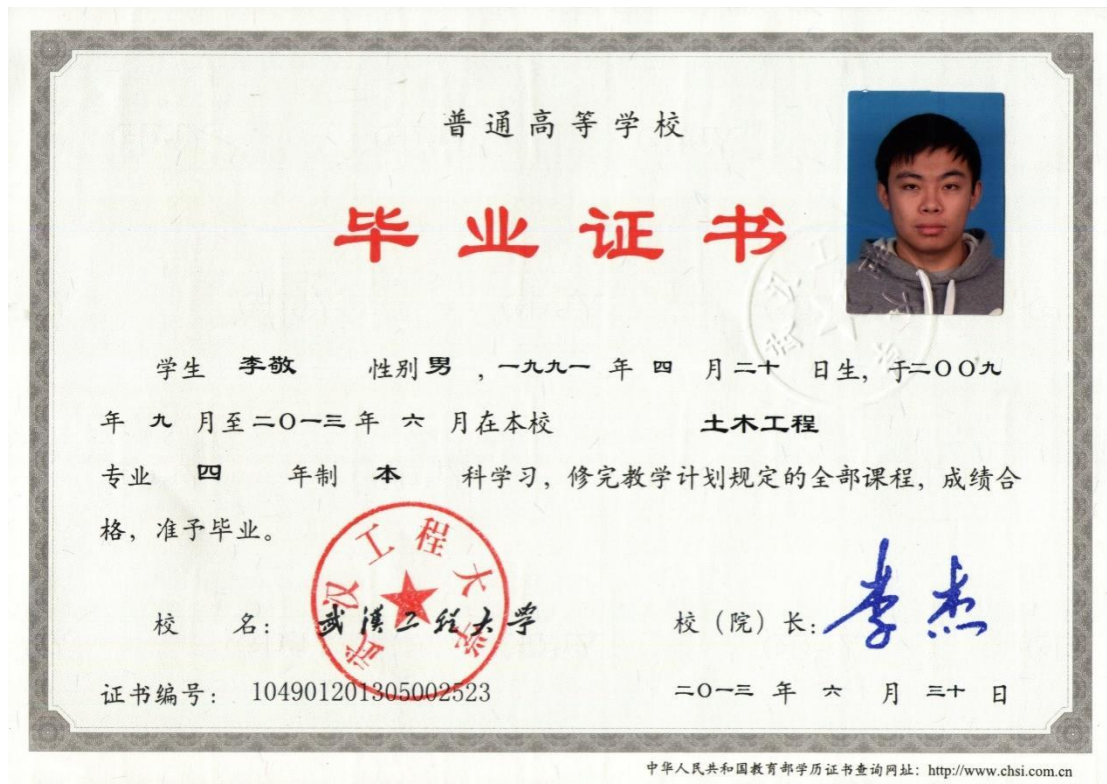 普通高等学校
毕业证书
学生 李敬 性别 男 ,一九九一 年 四 月 二十 日生, 于二〇〇九
年 九 月至 二〇一三 年 六 月在本校 土木工程
专业 四 年制 本 科学习, 修完教学计划规定的全部课程, 成绩合
格, 准予毕业。
武汉工程大学
校 名: 武汉工程大学 校(院)长: 李杰
证书编号: 104901201305002523 二〇一三 年 六 月 三十 日
中华人民共和国教育部学历证书查询网址: http://www.chsi.com.cn